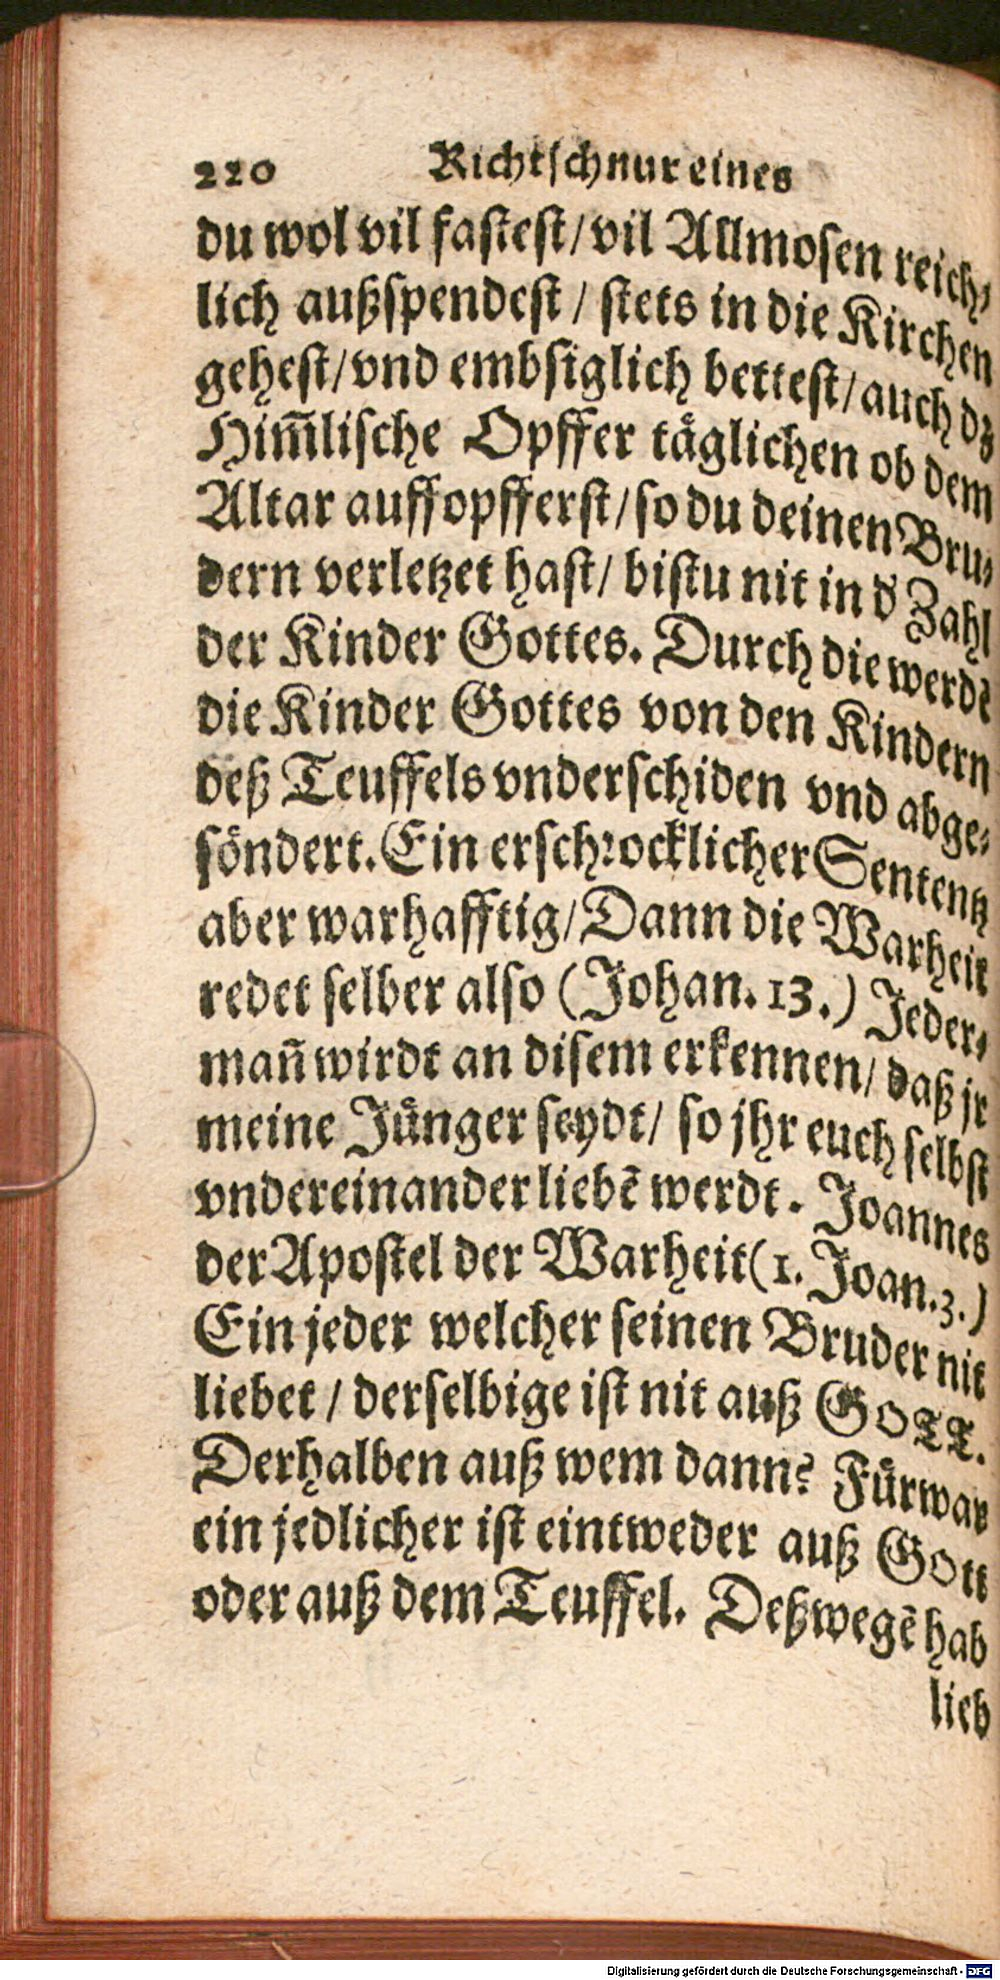 220 Richtschnur eines
du wol vil fastest/ vil Allmosen reich⸗
lich außspendest / stets in die Kirchen
gehest/ vnd embsiglich bettest/ auch dz
Him̃lische Opffer täglichen ob dem
Altar auffopfferst/ so du deinen Bru⸗
dern verletzet hast/ bistu nit in d̕ Zahl
der Kinder Gottes. Durch die werdẽ
die Kinder Gottes von den Kindern
deß Teuffels vnderschiden vnd abge⸗
söndert. Ein erschrocklicher Sententz
aber warhafftig/ Dann die Warheit
redet selber also (Johan. 13.) Jeder⸗
mañ wirdt an disem erkennen/ daß jr
meine Jünger seydt/ so jhr euch selbst
vndereinander liebẽ werdt. Joannes
der Apostel der Warheit (1. Joan. 3.)
Ein jeder welcher seinen Bruder nit
liebet / derselbige ist nit auß GOTT.
Derhalben auß wem dann? Fürwar
ein jedlicher ist eintweder auß Gott
oder auß dem Teuffel. Deßwegẽ hab
lieb
Digitalisierung gefördert durch die Deutsche Forschungsgemeinschaft - DFG